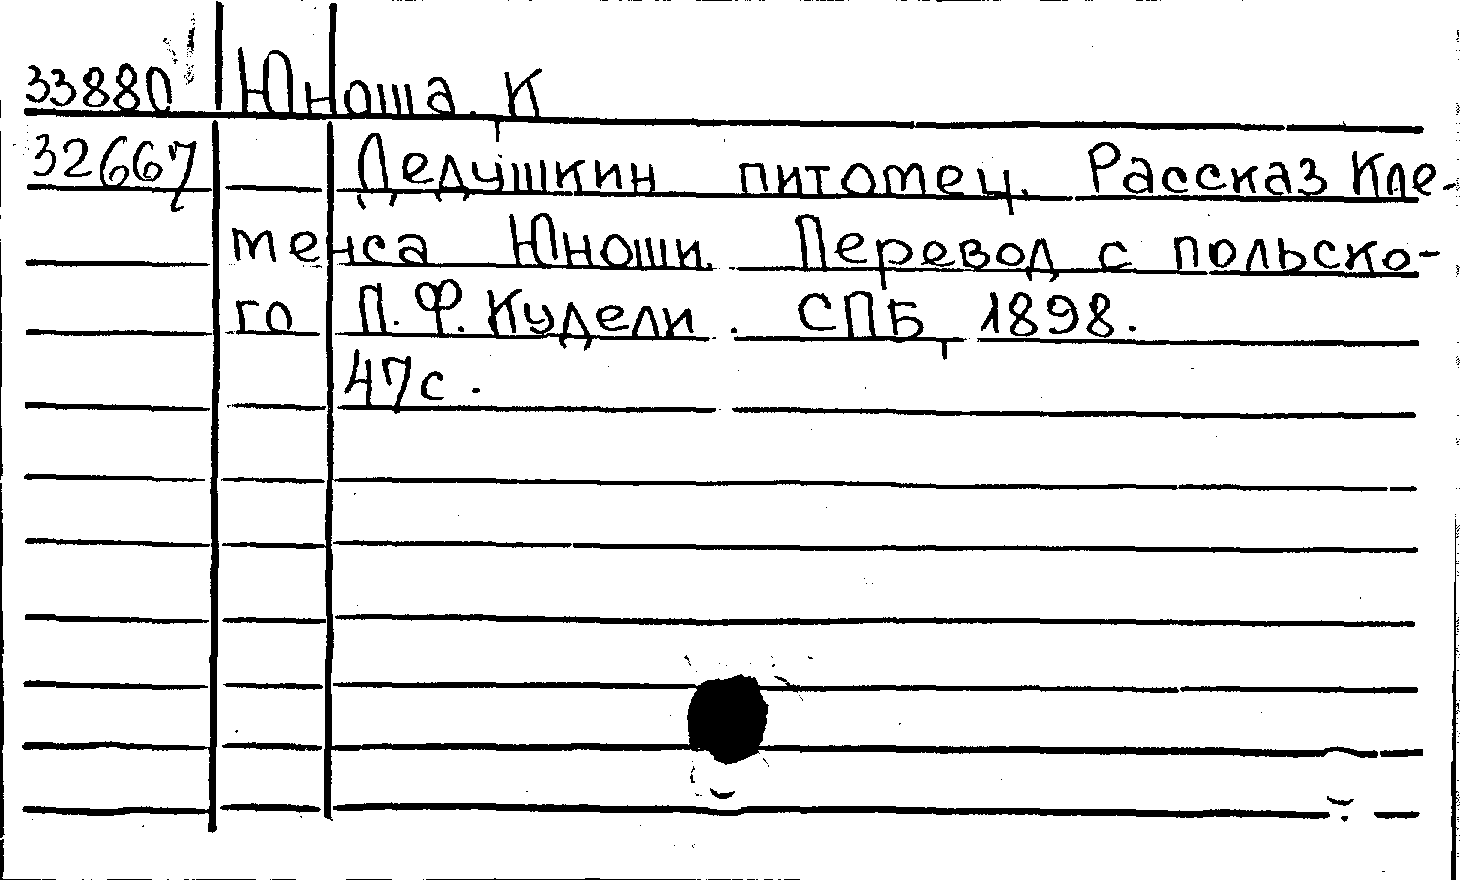 33880 Юноша, К
32667 Дедушкин питомец. Рассказ Кле-
менса Юноши. Перевод с польско-
го П.Ф. Кудели. СПБ, 1898.
47с.